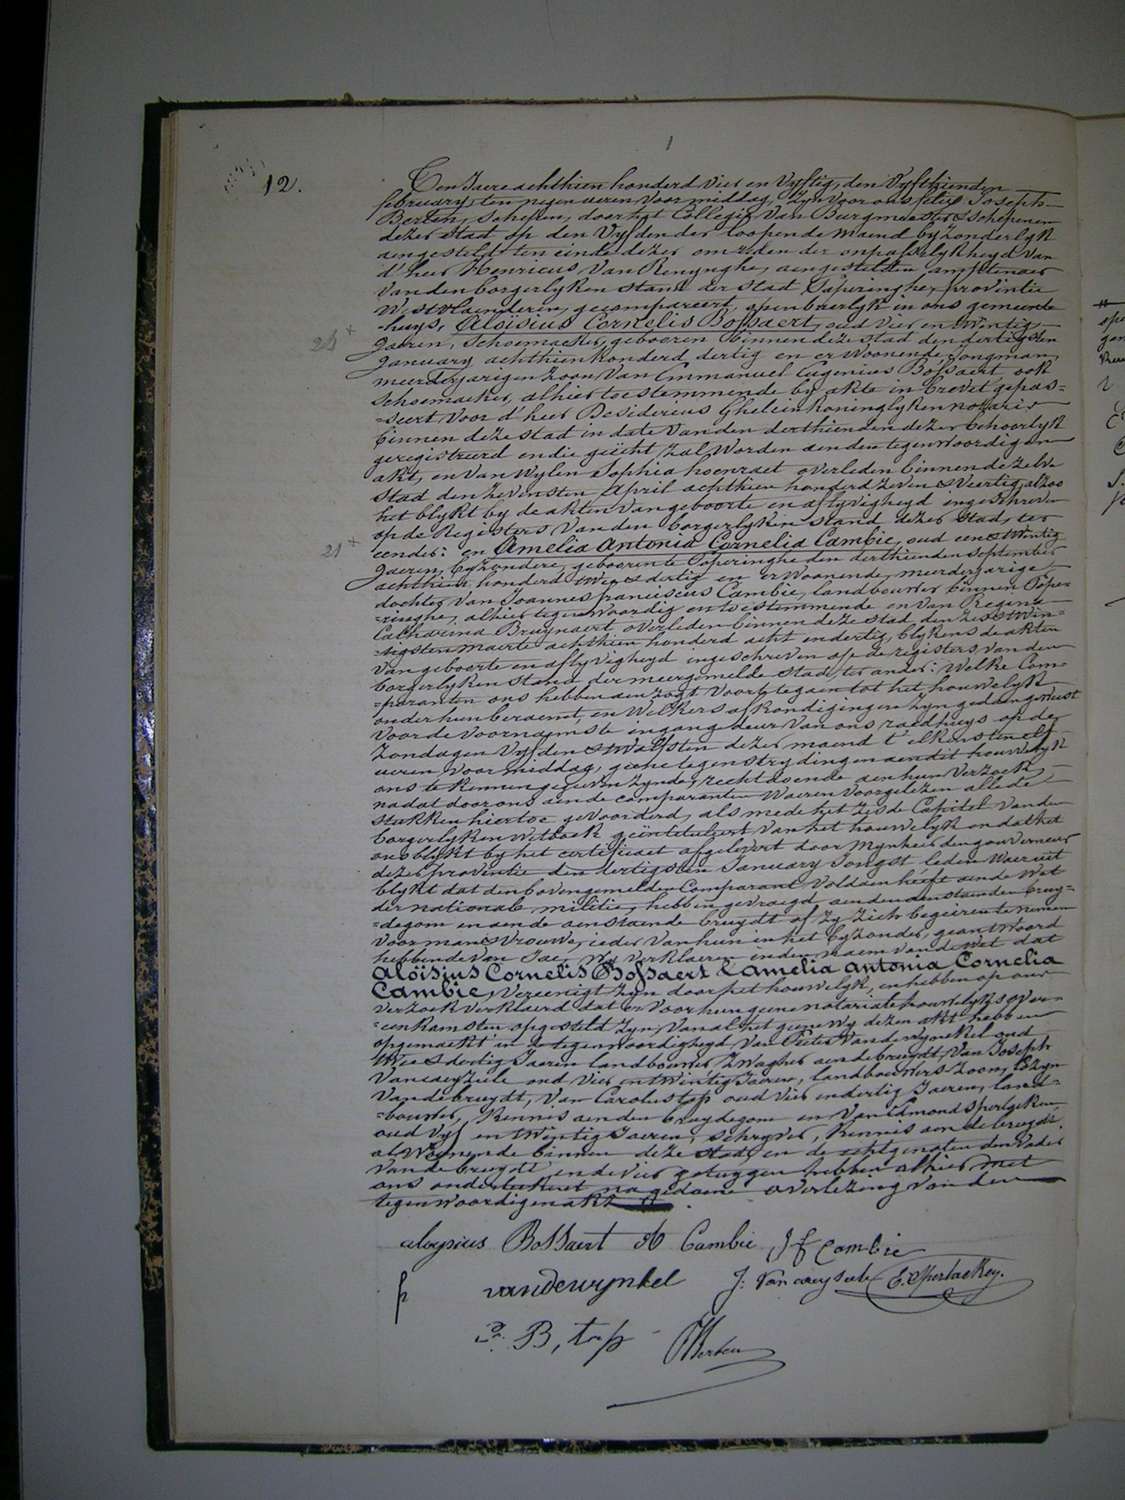 1
12.
Ten Jaere achthien honderd vier en vyftig, den vyfthienden
february, ten negen ueren voormiddag, zyn voor ons felix Joseph
Berten, Schepen, door het Collegie van Burgmeester & schepenen
dezer stad op den vyfden der loopende maend byzonderlyk
aengesteld ten einde dezer om reden der onpasselykheyd van
d'heer Henricus Van Renynghe, aengestelden ampstenaer
van den borgerlyken stand der stad Poperinghe, provintie
Westvlaenderen, gecompareert, openbaerlyk in ons gemeente
-huys, Aloïsius Cornelis Bossaert, oud vier en twintig
24 +
Jaeren, Schoemaeker, geboren binnen deze stad den dertigsten
January achthien honderd dertig en er woonende, Jongman,
meerderjarigen zoon van Emmanuel Eugenius Bossaert ook
schoemaeker, alhier toestemmende by akte in brevet gepas=
=seert voor d'heer Desidereus Ghelein koninglyken notaris
binnen deze stad in date van den derthienden dezer behoorlyk
geregistreerd en die gehecht zal worden aen den tegenwoordigen
akt, en van wylen Sophia hoenraet overleden binnen de zelve
stad den zevensten April achthien honderd zeven & veertig, alzoo
het blykt by de akten van geboorte en aflyvigheyd ingeschreven
op de Registers van den borgerlyken stand dezer stad, ter
eender: en Amelia Antonia Cornelia Cambie, oud een & twintig
21 +
Jaeren, byzondere, geboren te Poperinghe den derthienden september
achthien honderd twee & dertig en er woonende, meerderjarige
dochter van Joannes franciscus Cambie, landbouwer binnen Pope=
=ringhe, alhier tegenwoordig en toestemmende en van Regina
Catharina Bruynaert overleden binnen deze stad, den zes & twin=
=tigsten maerte achthien honderd acht en dertig, blykens de akten
van geboorte en aflyvigheyd ingeschreven op de registers van den
borgerlyken stand der meergemelde stad, ter ander: Welke Com=
=paranten ons hebben aenzogt voorts te gaen tot het houwelyk
onder hun beraemt, en welkers afkondigingen zyn gedaen geweest
voor de voornaemste ingangdeur van ons raedhuys op de
zondagen vyfden & twaelfsten dezer maend t'elkens ten elf
ueren voormiddag; geene tegenstrydingen aen dit houwelyk
ons te kennen gegeven zynde, rechtdoende aen hun verzoek,
na dat door ons aen de comparanten waeren voorgelezen alle de
stukken hier toe gevoorderd, als mede het zesde Capitel van den
borgerlyken wetboek geïntituleert van het houwelyk en dat het
ons blykt by het certificaet afgelevert door Mynheer den gouverneur
dezer provintie den dertigsten January Jongst leden waer uit
blykt dat den bovengemelden Comparant voldaen heeft aen de wet
der nationale militie, hebben gevraegd aen den aenstaenden bruy=
=degom en aen de aenstaende bruydt of zy zich begeeren te nemen
voor man & vrouwe, ieder van hun in het byzonder, geantwoord
hebbende van Jae, Wy verklaeren in den naem van de wet dat
Aloïsius Cornelis Bossaert & Amelia Antonia Cornelia
Cambie, vereenigt zyn door het houwelyk, en hebben op ons
verzoek verklaerd dat er voor hun geene notariale houwelyksover=
=eenkomsten opgesteld zyn, van al het gene wy dezen akt hebben
opgemaekt in de tegenwoordigheyd van Pieter Vandewynckel oud
twee & dertig Jaeren landbouwer, zwager aen de bruydt, van Joseph
Vancayzeele oud vier en twintig Jaeren, landbouwers zoon, kozyn
van de bruydt, van Carolus top oud vier en dertig Jaeren, land=
=bouwer, kennis aen den bruydegom en van Edmond Sperlaeken,
oud vyf en twintig Jaeren, schryver, kennis aen de bruydt,
al woonende binnen deze stad, en de echtgenoten den vader
van de bruydt en de vier getuygen hebben alhier met
ons onderteekent na gedaene overlezing van den
tegenwoordigen akt.
aloysius Bossaert ab Cambie J f Cambie
p vandewynkel J: Vancayseele E. Sperlaeken.
C. B, top FBerten